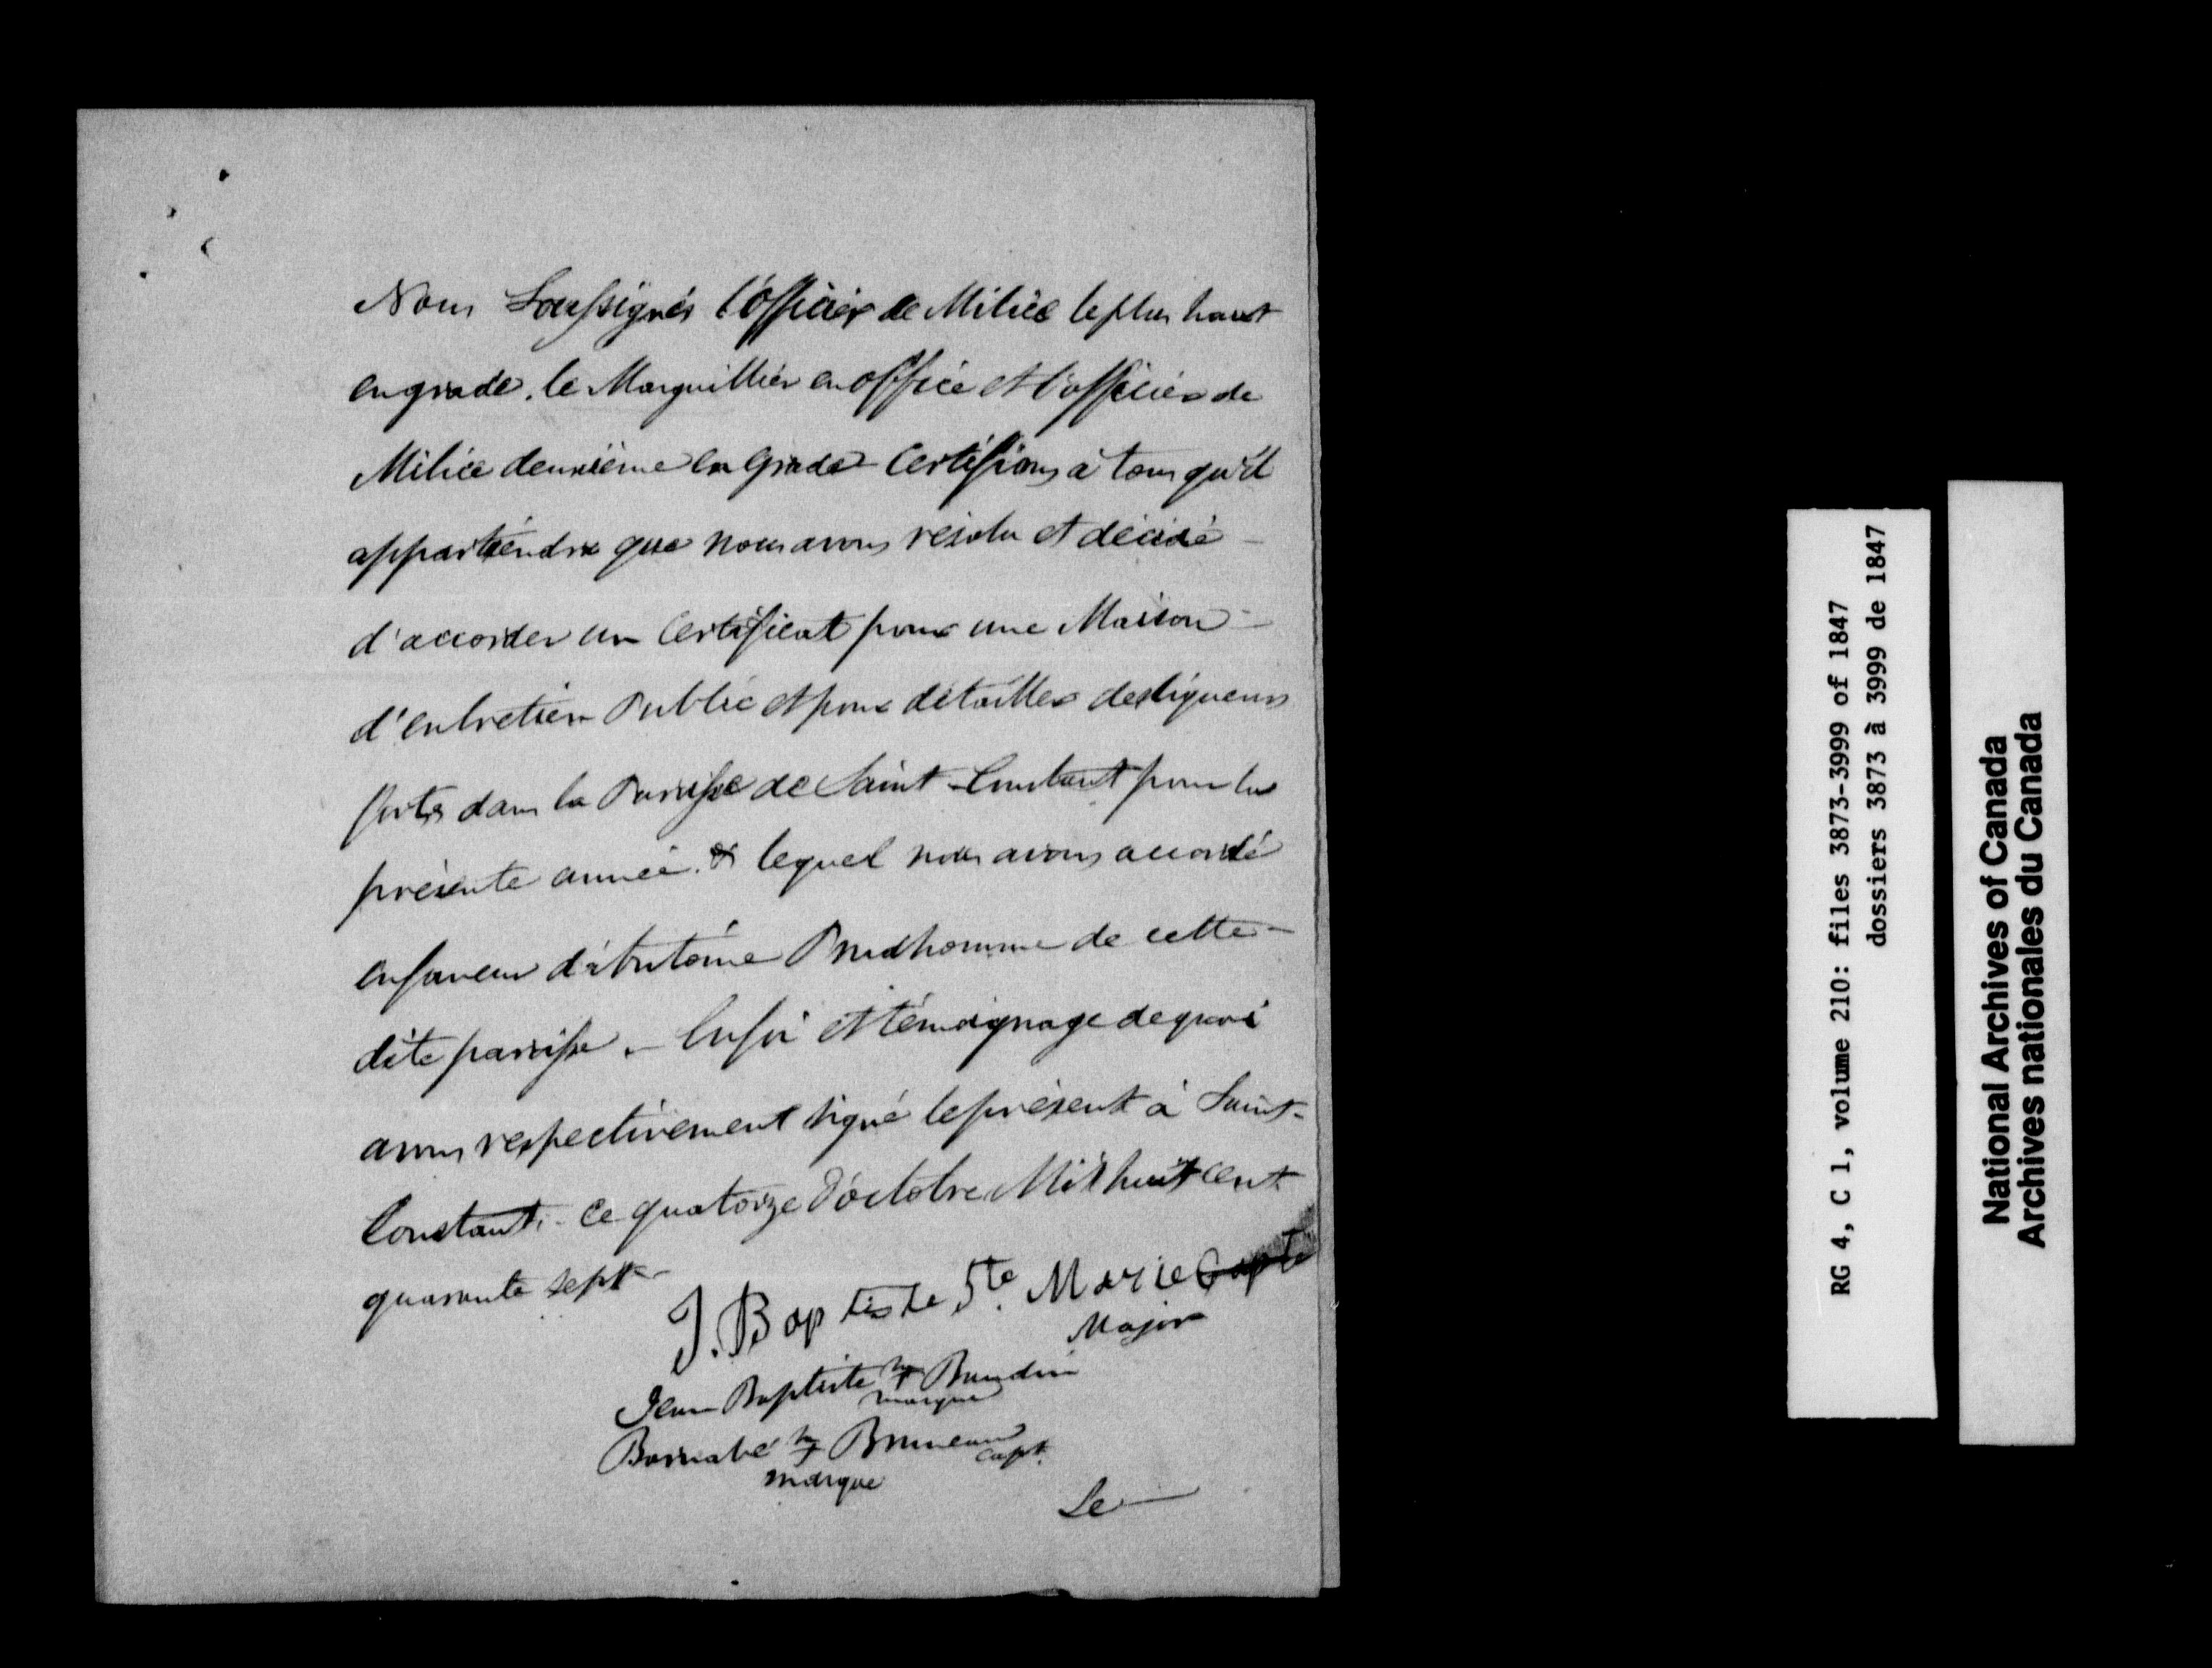 Nous Soussignés l'Officier de Milice le plus haut
en grade, le Marguillier en office et l'officier de
Milice deuxième en Grade Certifions à tous qu'il
appartiendra que nous avons résolu et décidé -
d'accorder un Certificat pour une Maison -
d'entretien Public et pour détailler des liqueurs
fortes dans la Paroisse de Saint-Constant pour la
présente année. & lequel nous avons accordé
en faveur d'Antoine Prudhomme de cette -
dite paroisse. - En foi et témoignage de quoi
avons respectivement signé le présent à Saint-
Constant. - Ce quatorze d'octobre Mil huit cent
quarante sept -
J. Baptiste Ste. Marie Capt
Major
Jean Baptiste + Baudin
marque
Barnabé + Bruneau
Capt.
marque
Le
RG 4, C 1, volume 210: files 3873-3999 of 1847
dossiers 3873 à 3999 de 1847
National Archives of Canada
Archives nationales du Canada